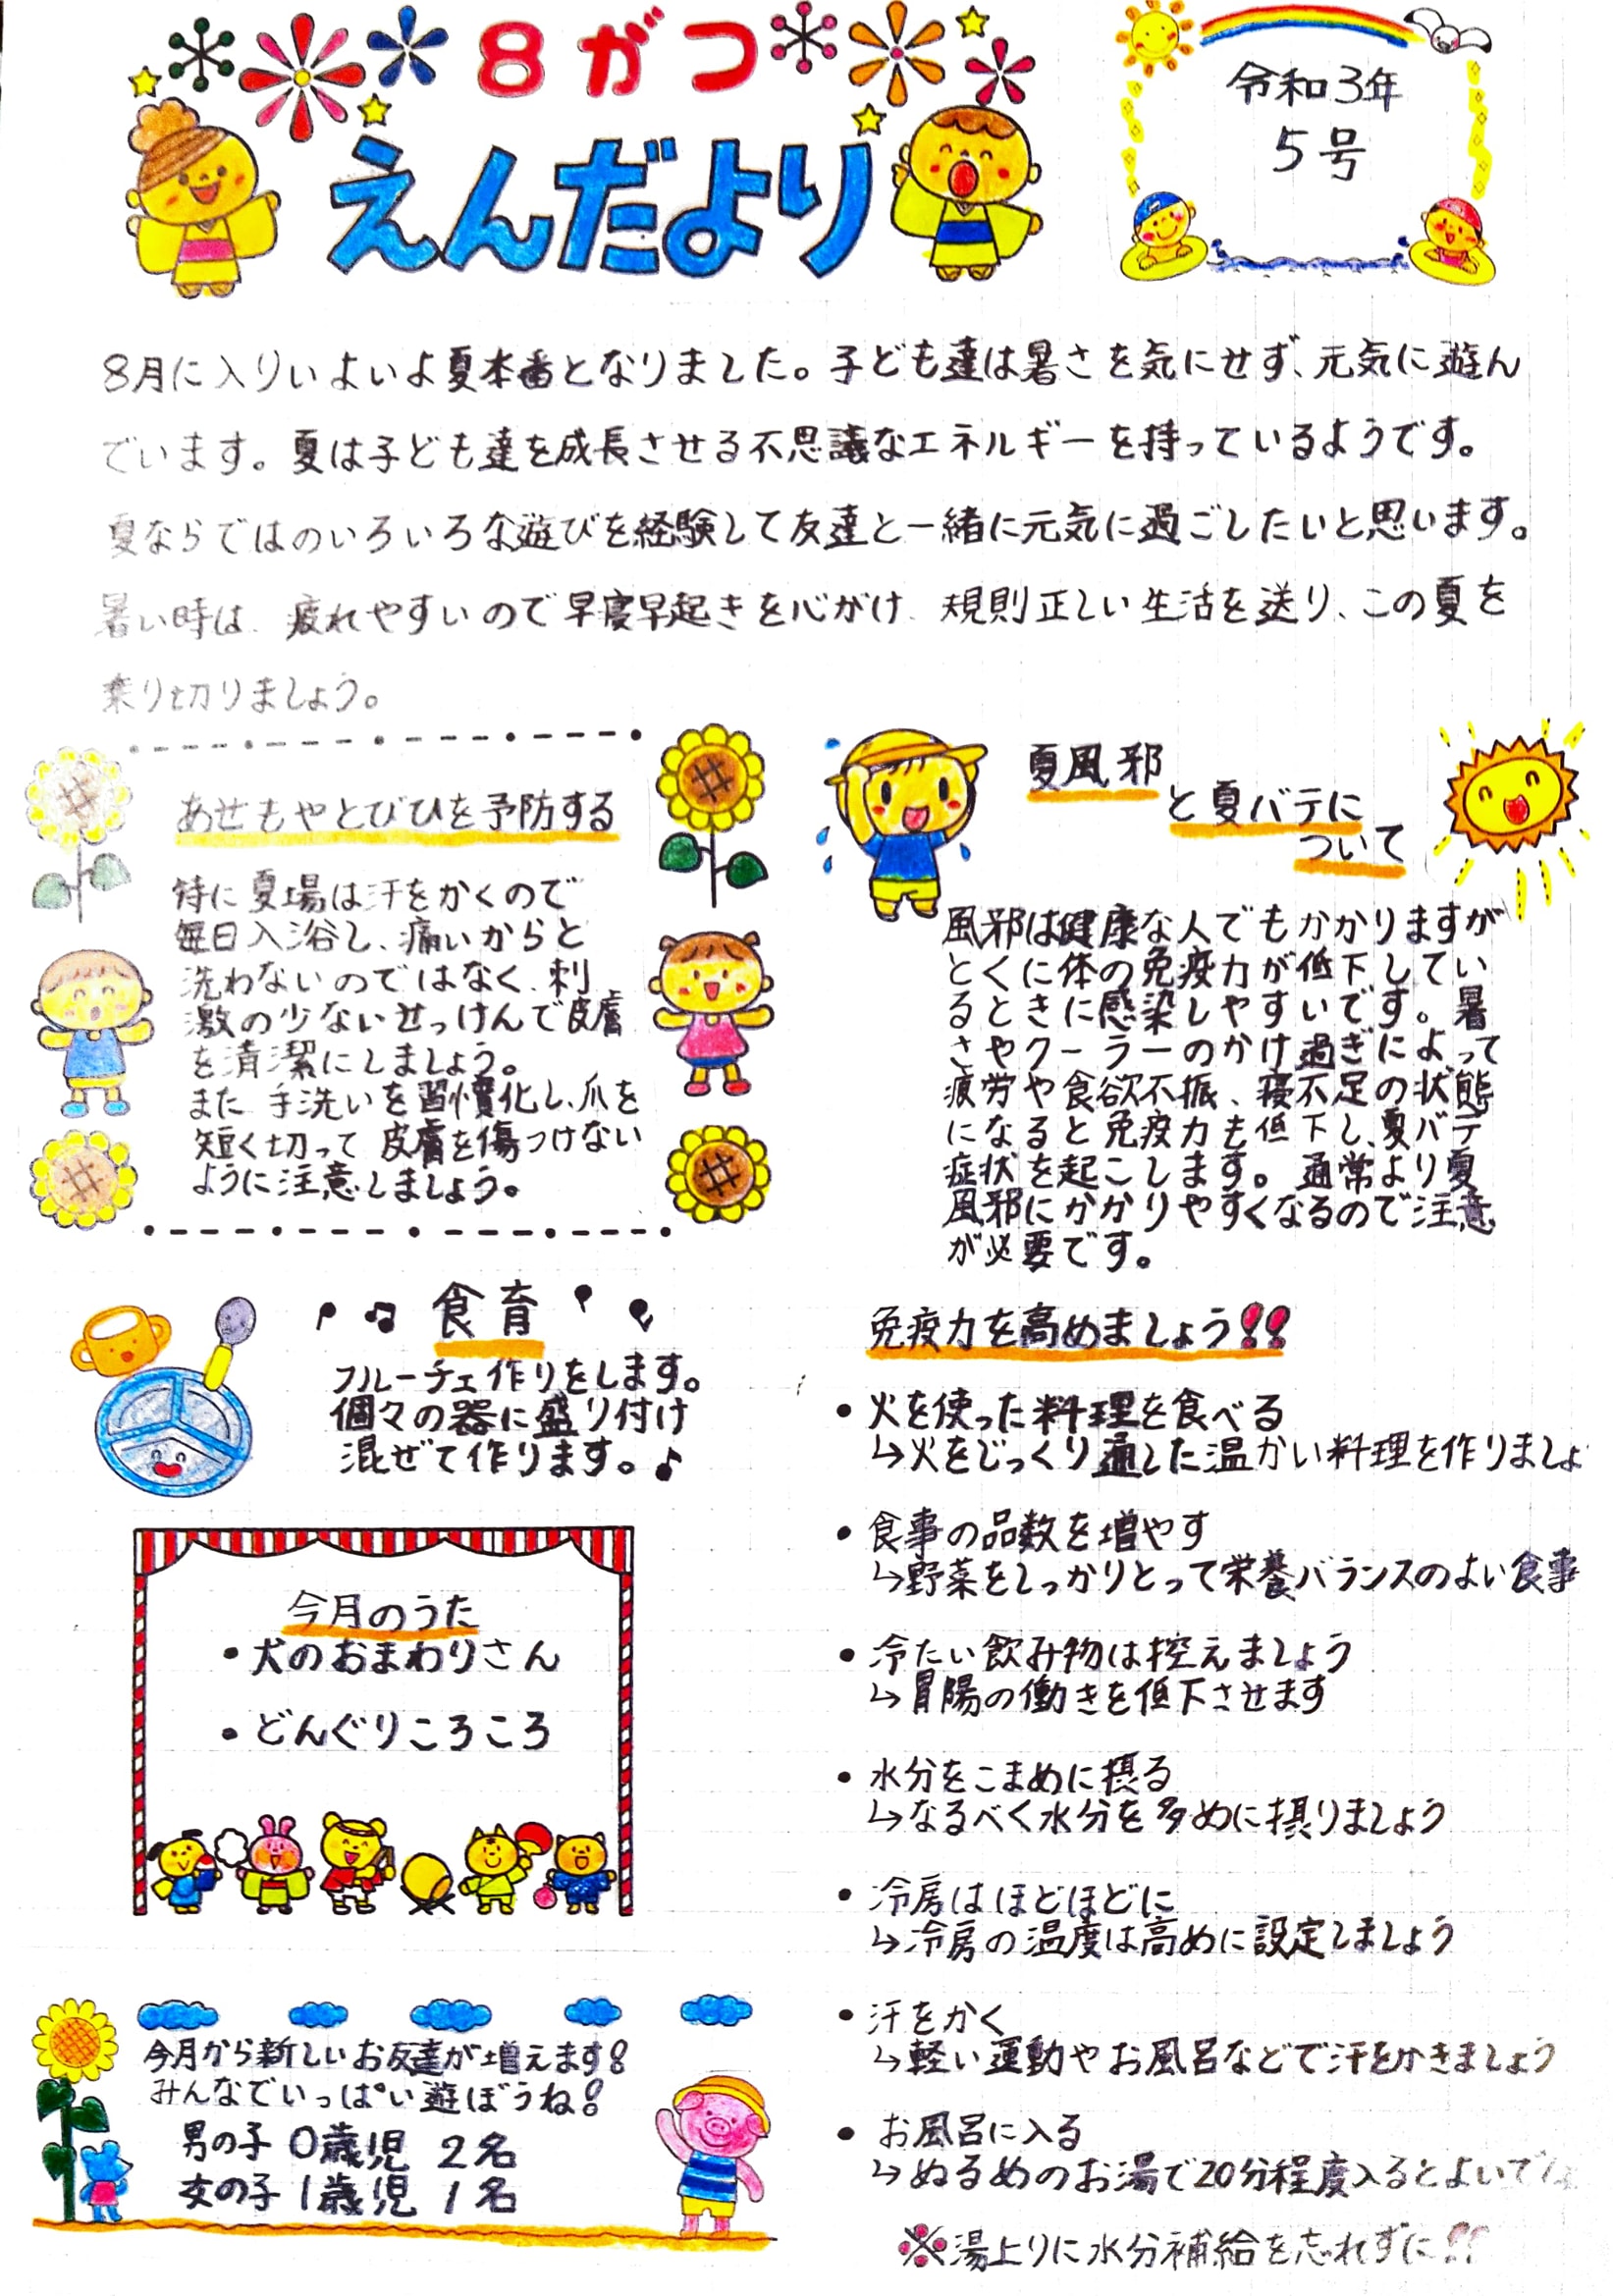 8がつ
えんだより
令和3年
5号
8月に入りいよいよ夏本番となりました。子ども達は暑さを気にせず、元気に遊ん
でいます。夏は子ども達を成長させる不思議なエネルギーを持っているようです。
夏ならではのいろいろな遊びを経験して友達と一緒に元気に過ごしたいと思います。
暑い時は、疲れやすいので早寝早起きを心がけ、規則正しい生活を送り、この夏を
乗り切りましょう。
あせもやとびひを予防する
特に夏場は汗をかくので
毎日入浴し、痛いからと
洗わないのではなく、刺
激の少ないせっけんで皮膚
を清潔にしましょう。
また手洗いを習慣化し、爪を
短く切って皮膚を傷つけない
ように注意しましょう。
食育
フルーチェ作りをします。
個々の器に盛り付け
混ぜて作ります。♪
今月のうた
・犬のおまわりさん
・どんぐりころころ
今月から新しいお友達が増えます!
みんなでいっぱい遊ぼうね!
男の子 0歳児 2名
女の子 1歳児 1名
夏風邪
と夏バテに
ついて
風邪は健康な人でもかかりますが
とくに体の免疫力が低下してい
るときに感染しやすいです。暑
さやクーラーのかけ過ぎによって
疲労や食欲不振、寝不足の状態
になると免疫力も低下し、夏バテ
症状を起こします。通常より夏
風邪にかかりやすくなるので注意
が必要です。
免疫力を高めましょう!!
・火を使った料理を食べる
↳火をじっくり通した温かい料理を作りましょ
・食事の品数を増やす
↳野菜をしっかりとって栄養バランスのよい食事
・冷たい飲み物は控えましょう
↳胃腸の働きを低下させます
・水分をこまめに摂る
↳なるべく水分を多めに摂りましょう
・冷房はほどほどに
↳冷房の温度は高めに設定しましょう
・汗をかく
↳軽い運動やお風呂などで汗をかきましょう
・お風呂に入る
↳ぬるめのお湯で20分程度入るとよいで
※湯上りに水分補給を忘れずに!!